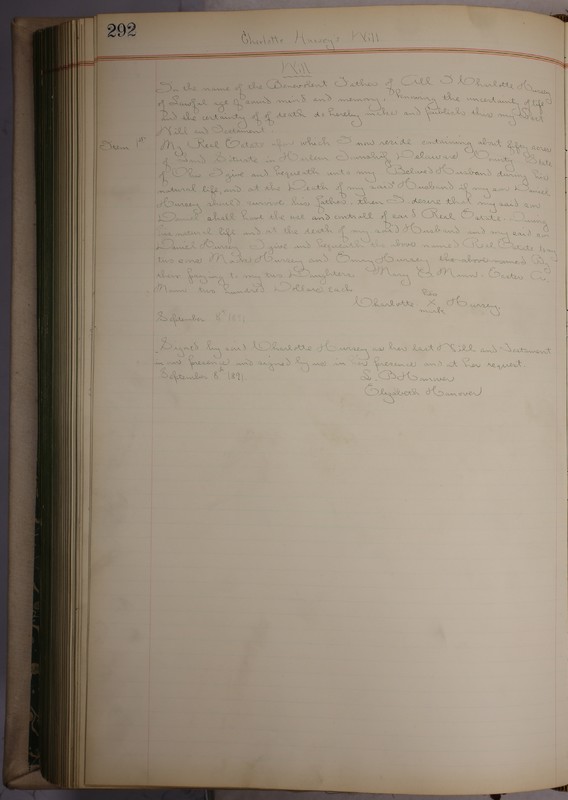 292
Charlotte Hursey's Will
Will
In the name of the Benevolent Father of All I Charlotte Hursey
of Lawful age of sound mind and memory. Knowing the uncertainty of life
and the certainty of death do hereby make and publish this my Last
Will and Testament
Item 1st My Real Estate upon which I now reside containing about fifty acres
of Land Situate in Harlem Township Delaware County State
of Ohio I give and bequeath unto my Beloved Husband during his
natural life, and at the Death of my said Husband if my son Daniel
Hursey should survive his father, then I desire that my said son
Daniel shall have the use and controll of said Real Estate during
his natural life and at the death of my said Husband and my said son
Daniel Hursey. I give and bequeath the above named Real Estate to my
two sons Hursey and Hursey the above named
paying to my two Daughters Mary Mann
Mann two hundred Dollars each
her
Charlotte x Hursey
mark
September 8th 1891
Signed by said Charlotte Hursey as her last Will and Testament
in our presence and signed by us in her presence and at her request
September 8th 1891 S. B. Hanover
Elizabeth Hanover